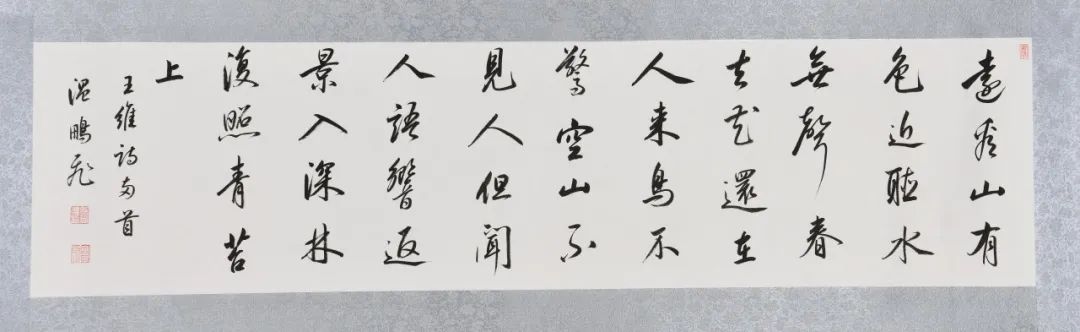 遠看山有
色近聴水
無聲春
去花還在
人来鳥不
驚空山不
見人但聞
人語響返
景入深林
復照青苔
上
王維詩兩首
温鵬飛